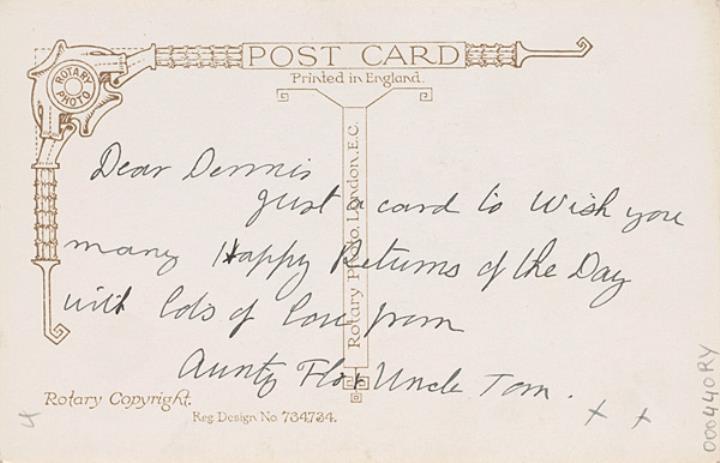 POST CARD
Printed in England.
ROTARY
PHOTO
Rotary Photo, London, E.C.
Dear Dennis
Just a card to Wish you
many Happy Returns of the Day
with lots of love from
Aunty Flo & Uncle Tom.
x x
Rotary Copyright.
Reg. Design No. 734734.
4
000440RY